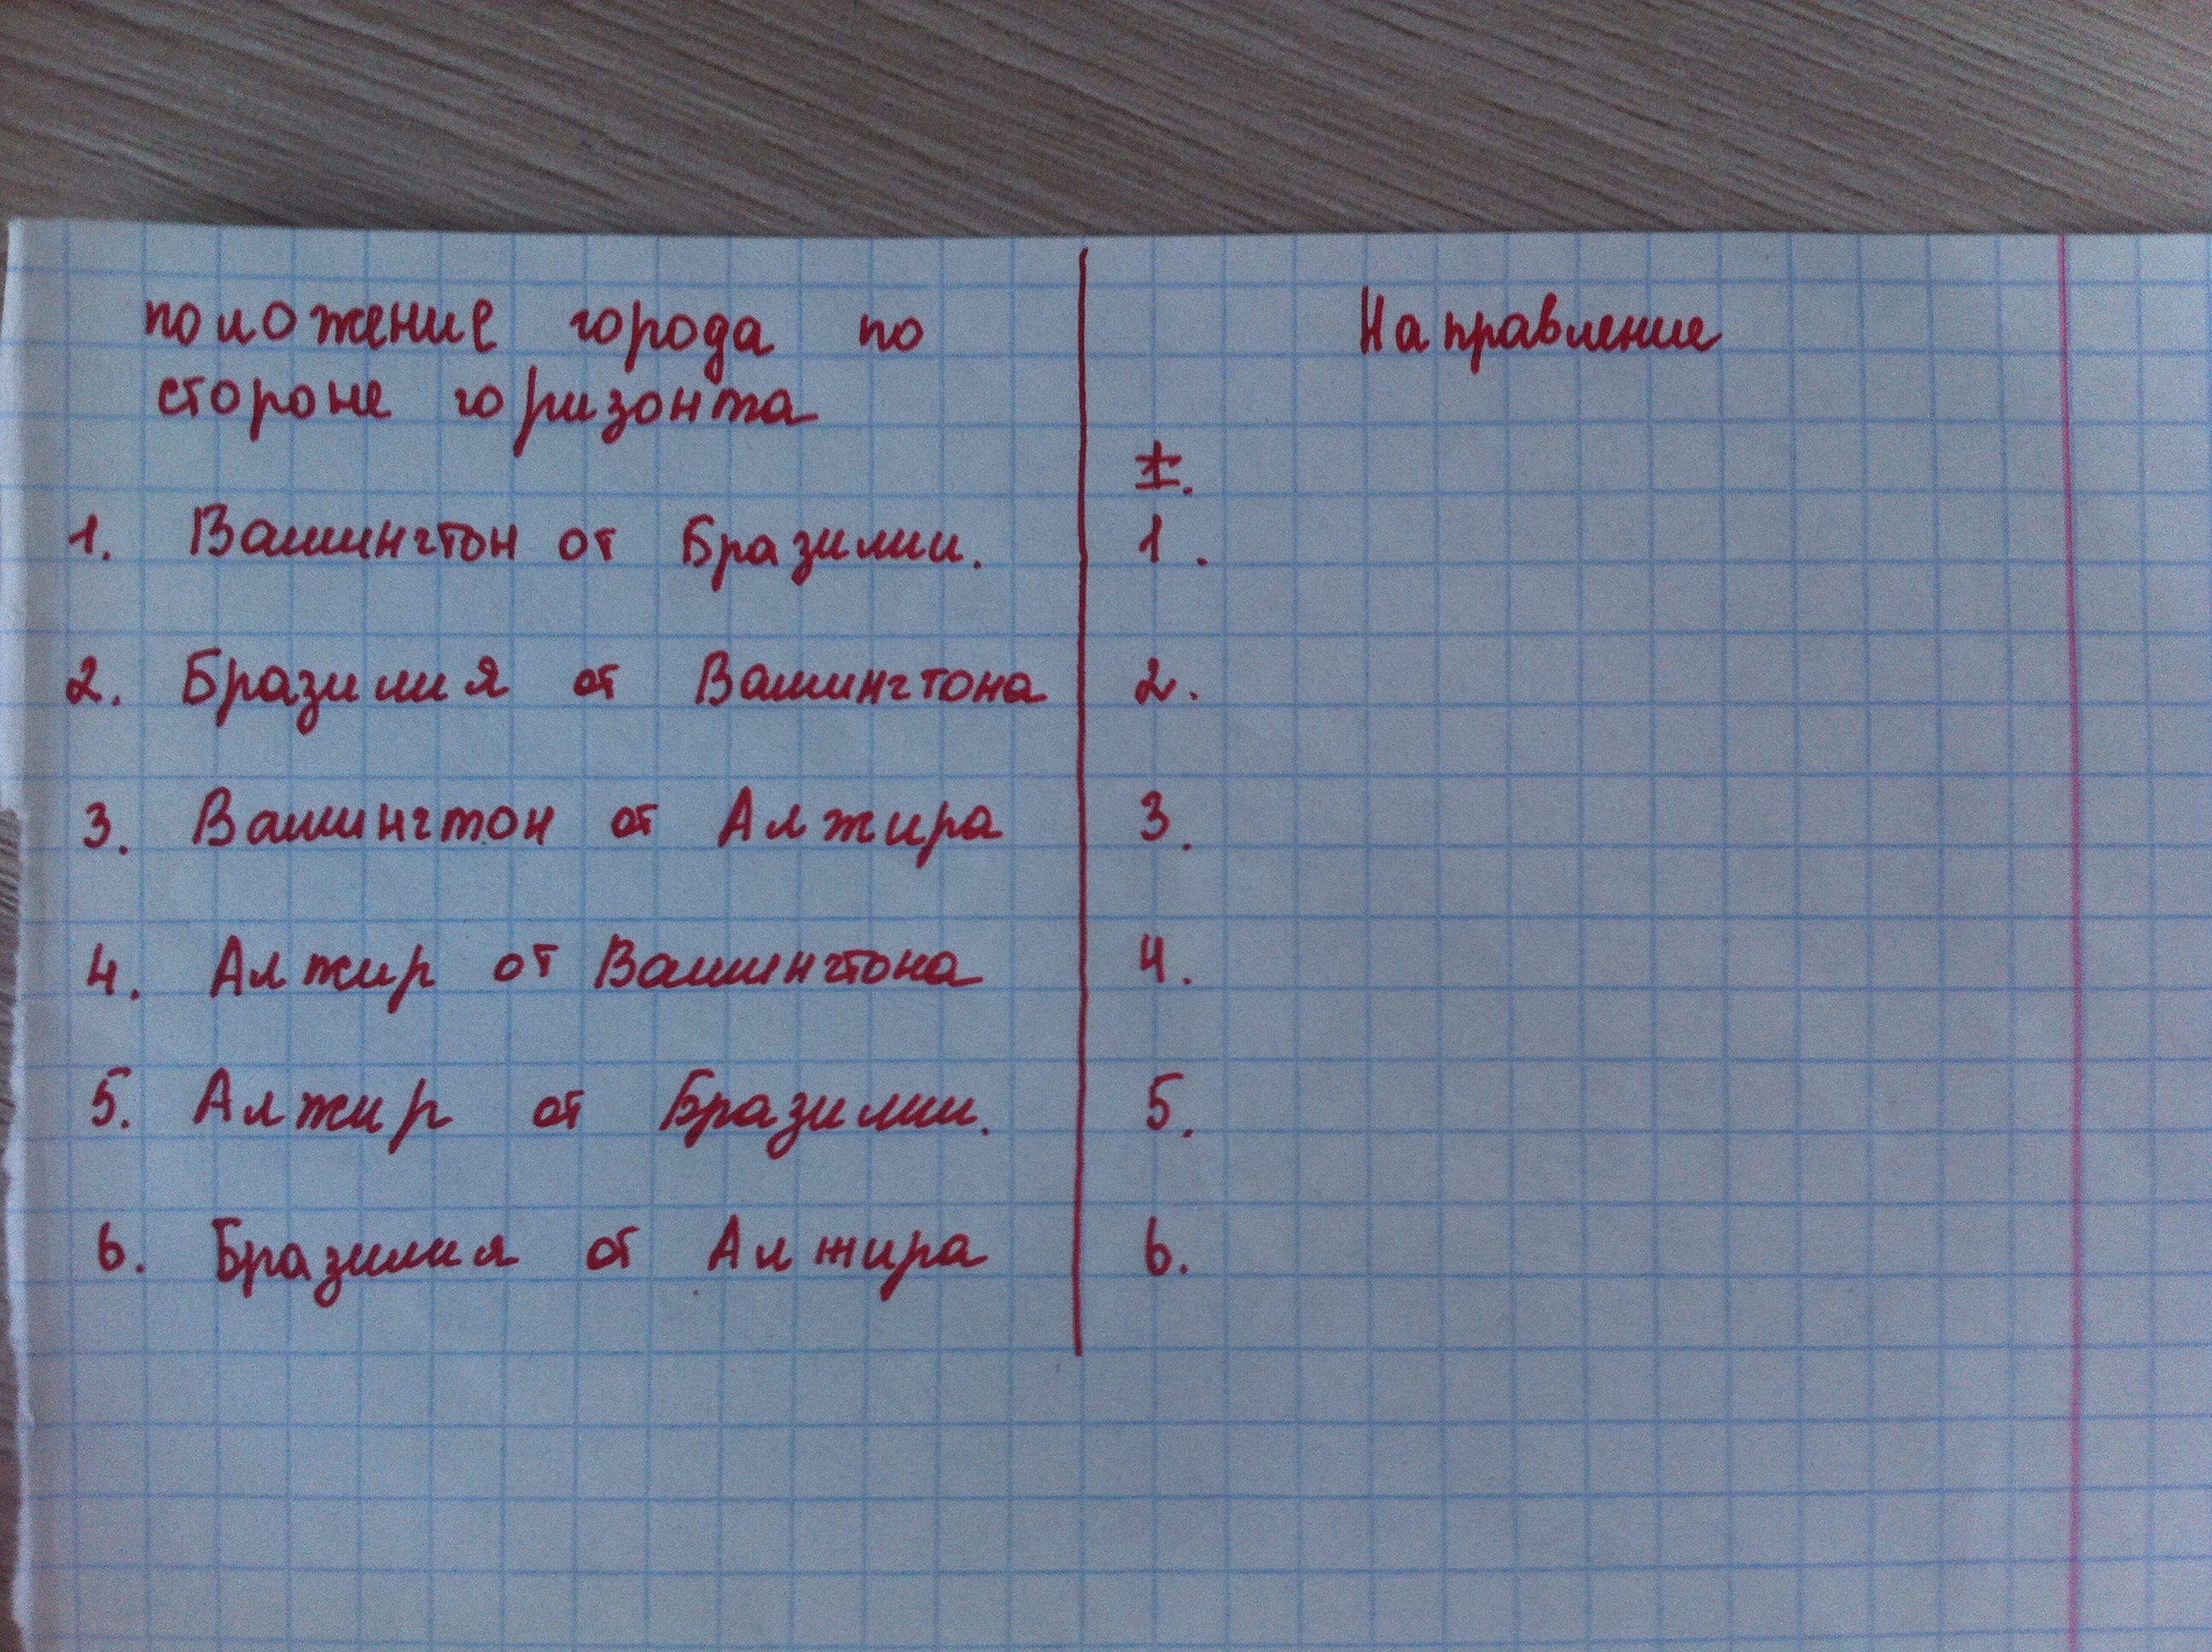 положение города по
стороне горизонта
1. Вашингтон от Бразилии.
2. Бразилия от Вашингтона
3. Вашингтон от Алжира
4. Алжир от Вашингтона
5. Алжир от Бразилии.
6. Бразилия от Алжира
Направление
1.
1.
2.
3.
4.
5.
6.